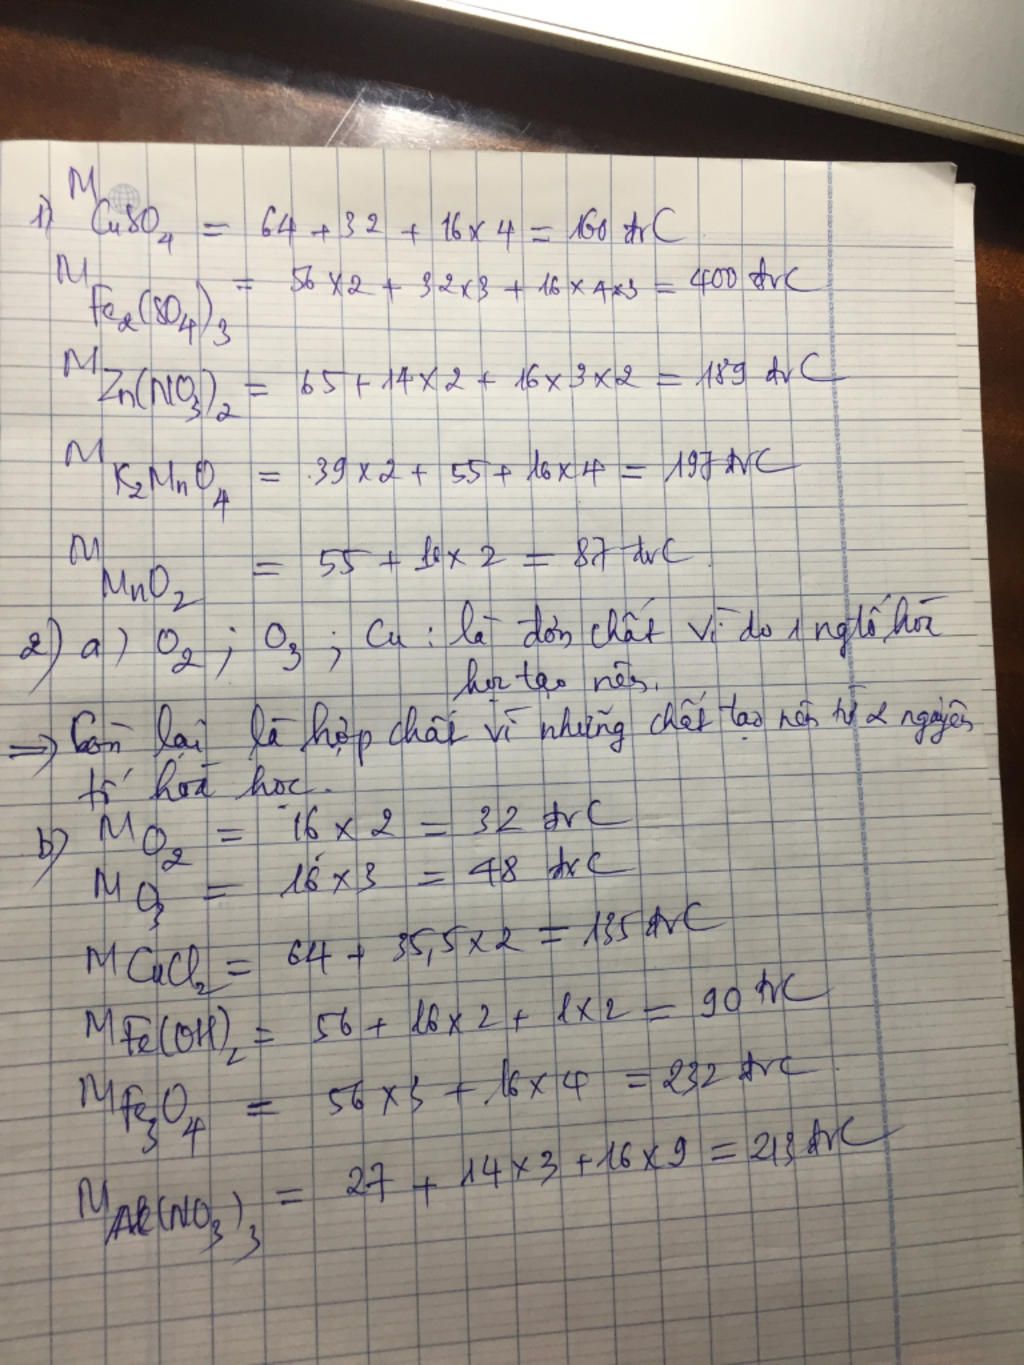 1) M CuSO4 = 64 + 32 + 16 x 4 = 160 đvC
M Fe2(SO4)3 = 56 x 2 + 32 x 3 + 16 x 4 x 3 = 400 đvC
M Zn(NO3)2 = 65 + 14 x 2 + 16 x 3 x 2 = 189 đvC
M K2MnO4 = 39 x 2 + 55 + 16 x 4 = 197 đvC
M MnO2 = 55 + 16 x 2 = 87 đvC
2) a) O2 ; O3 ; Cu : là đơn chất vì do 1 ngtố hóa
học tạo nên.
=> Còn lại là hợp chất vì những chất tạo nên từ 2 nguyên
tố hóa học.
b) M O2 = 16 x 2 = 32 đvC
M O3 = 16 x 3 = 48 đvC
M CuCl2 = 64 + 35,5 x 2 = 135 đvC
M Fe(OH)2 = 56 + 16 x 2 + 1 x 2 = 90 đvC
M Fe3O4 = 56 x 3 + 16 x 4 = 232 đvC
M Al(NO3)3 = 27 + 14 x 3 + 16 x 9 = 213 đvC